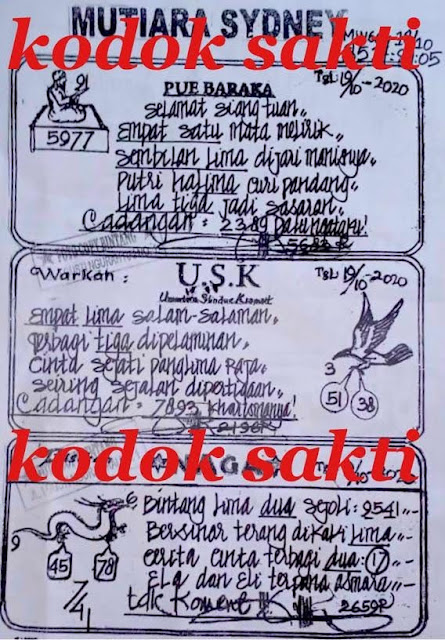 MUTIARA SYDNEY
kodok sakti
Tgl 19/10-2020
PUE BARAKA
91
5977
Selamat siang tuan
Empat satu mata melirik
Sembilan lima dijari manisnya
Putri halima curi pandang
Lima tiga jadi sasaran
Cadangan : 2389
Warkah :
U.S.K
Tgl 19/10-2020
Empat lima salam-salaman
Terbagi tiga dipelaminan
Cinta sejati panglima raja
Seiring sejalan dipertigaan
Cadangan : 7893
2196R
3
51
38
kodok sakti
6
9
45
78
7/41
Bintang lima dua sejoli : 2541
Bersinar terang dikaki lima
Cerita cinta terbagi dua : 17
Ela dan Eli terpana asmara
tdk Koment !!
2659R